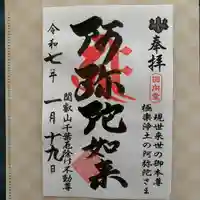 奉拝
現世来世の御本尊
極楽浄土の阿弥陀さま
阿弥陀如来
関叡山千葉厄除け不動尊
令和七年一月十九日